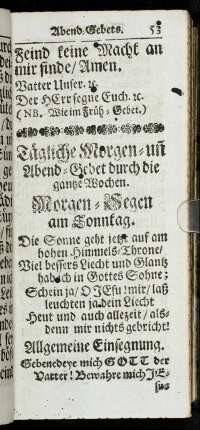 Abend-Gebets. 53
Feind keine Macht an
mir finde/Amen.
Vatter Unser. ꝛc.
Der HErr segne Euch. ꝛc.
(NB. Wie im Früh-Gebet.)
Tägliche Morgen-uñ
Abend-Gebet durch die
gantze Wochen.
Morgen-Segen
am Sonntag.
Die Sonne geht jetzt auf am
hohen Himmels/Throne/
Viel bessers Liecht und Glantz
hab ich in Gottes Sohne;
Schein ja/O JEsu! mir/laß
leuchten ja dein Liecht
Heut und auch allezeit/als-
denn mir nichts gebricht!
Allgemeine Einsegnung.
Gebenedeye mich GOTT der
Vatter! Bewahre mich JE-
sus